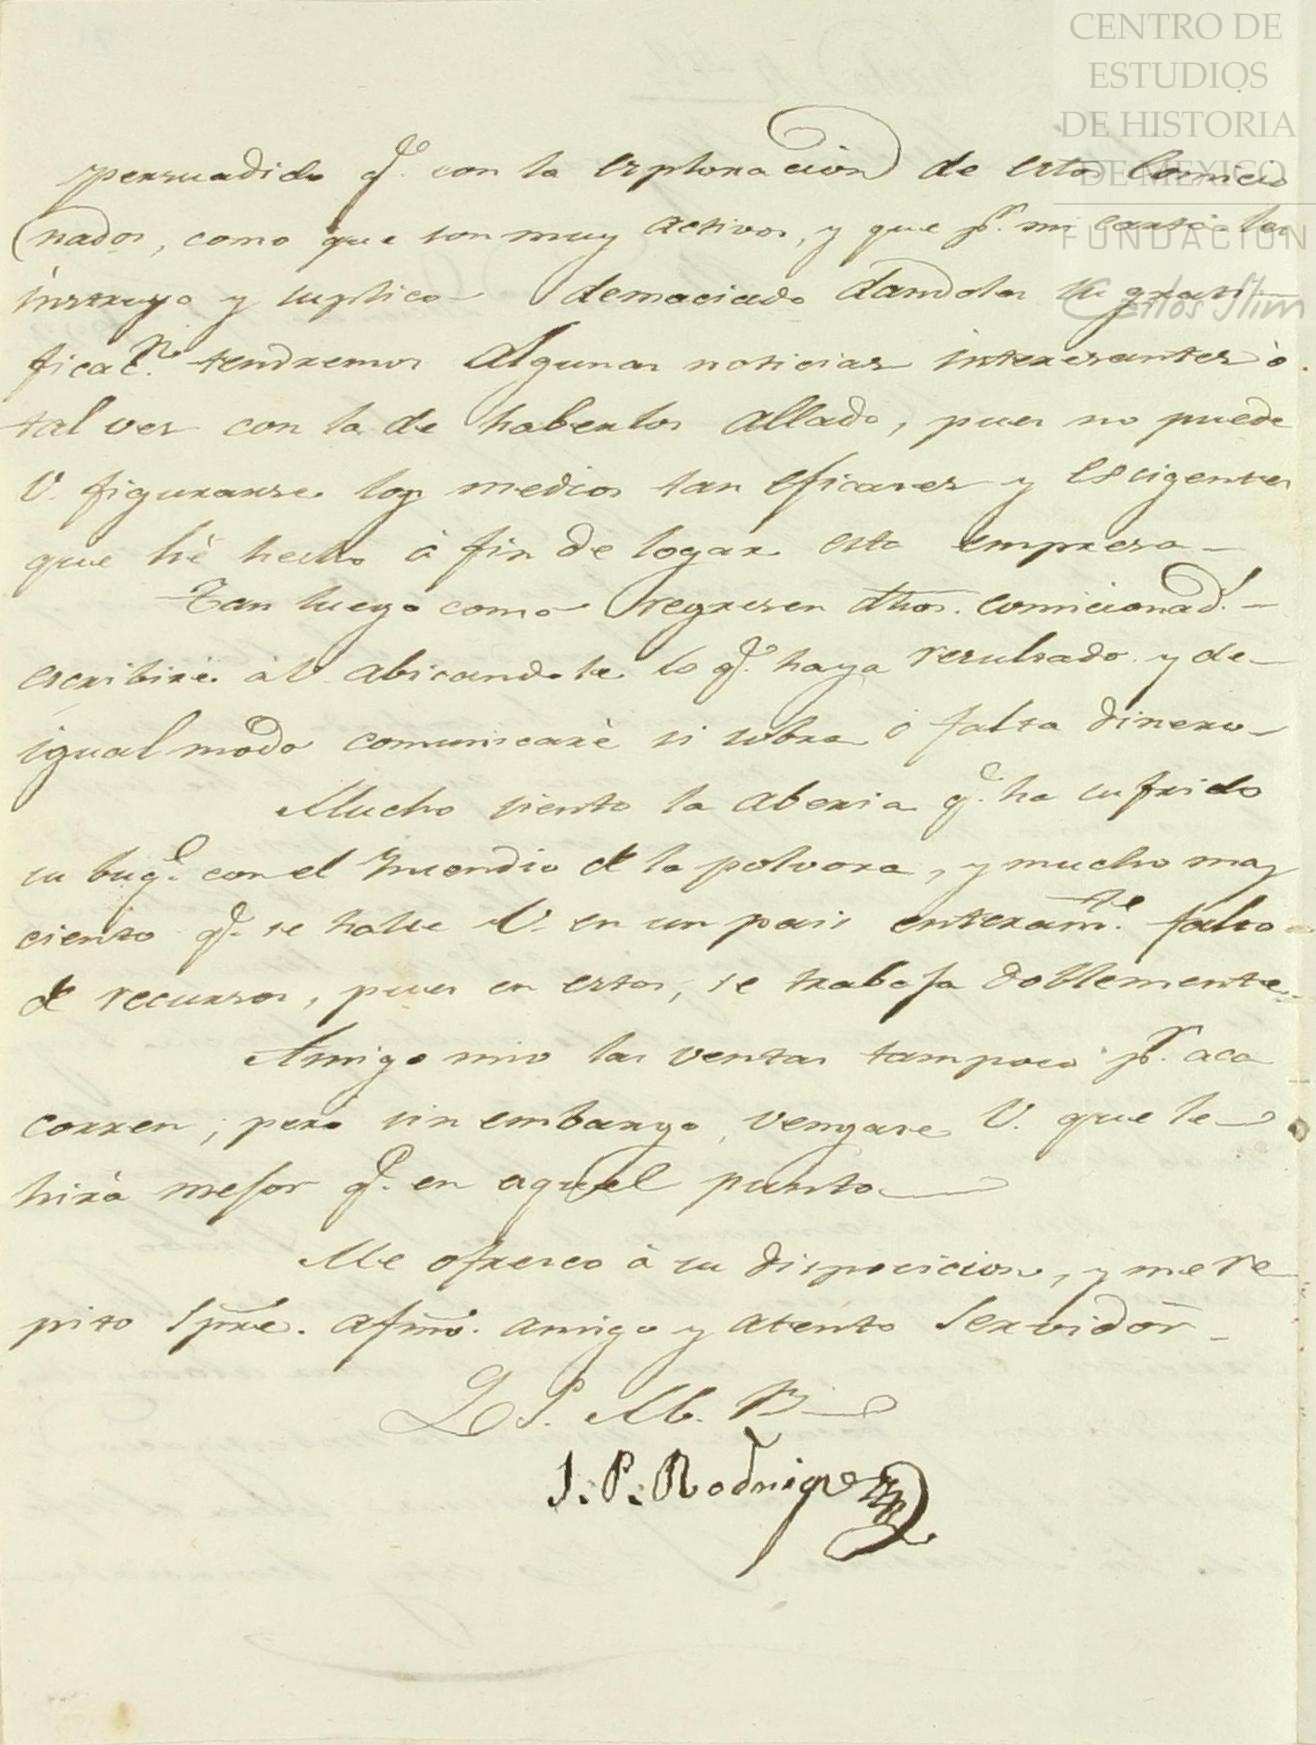 CENTRO DE
ESTUDIOS
DE HISTORIA
DE MEXICO
FUNDACIÓN
Carlos Slim
persuadido q.e con la esploración de estos Comicio
nados, como que son muy activos, y que p.r mi carta les
instruyo y suplico demaciado dandoles su grati
ficac.n tendremos algunas noticias interesantes ò
tal ves con la de haberlos allado, pues no puede
V. figurarse los medios tan eficaces y escigentes
que hè hecho à fin de logar esta empresa
Tan luego como regresen dhos. comicionad.s
escribirè à V. abisandole lo q.e haya resultado y de
igual modo comunicarè si sobra ò falta dinero
Mucho siento la aberia q.e ha sufrido
su buq.e con el Incendio de la polvora, y mucho mas
ciento q.e se halle V. en un pais enteram.te falto
de recursos, pues en estos, se trabaja doblemente
Amigo mio las ventas tampoco p.r aca
corren; pero sin embargo, vengase V. que le
hirà mejor q.e en aquel punto
Me ofresco à su disposicion, y me re
pito Spre. afmo. amigo y atento Servidor
Q S. M. B
J. P. Rodriguez